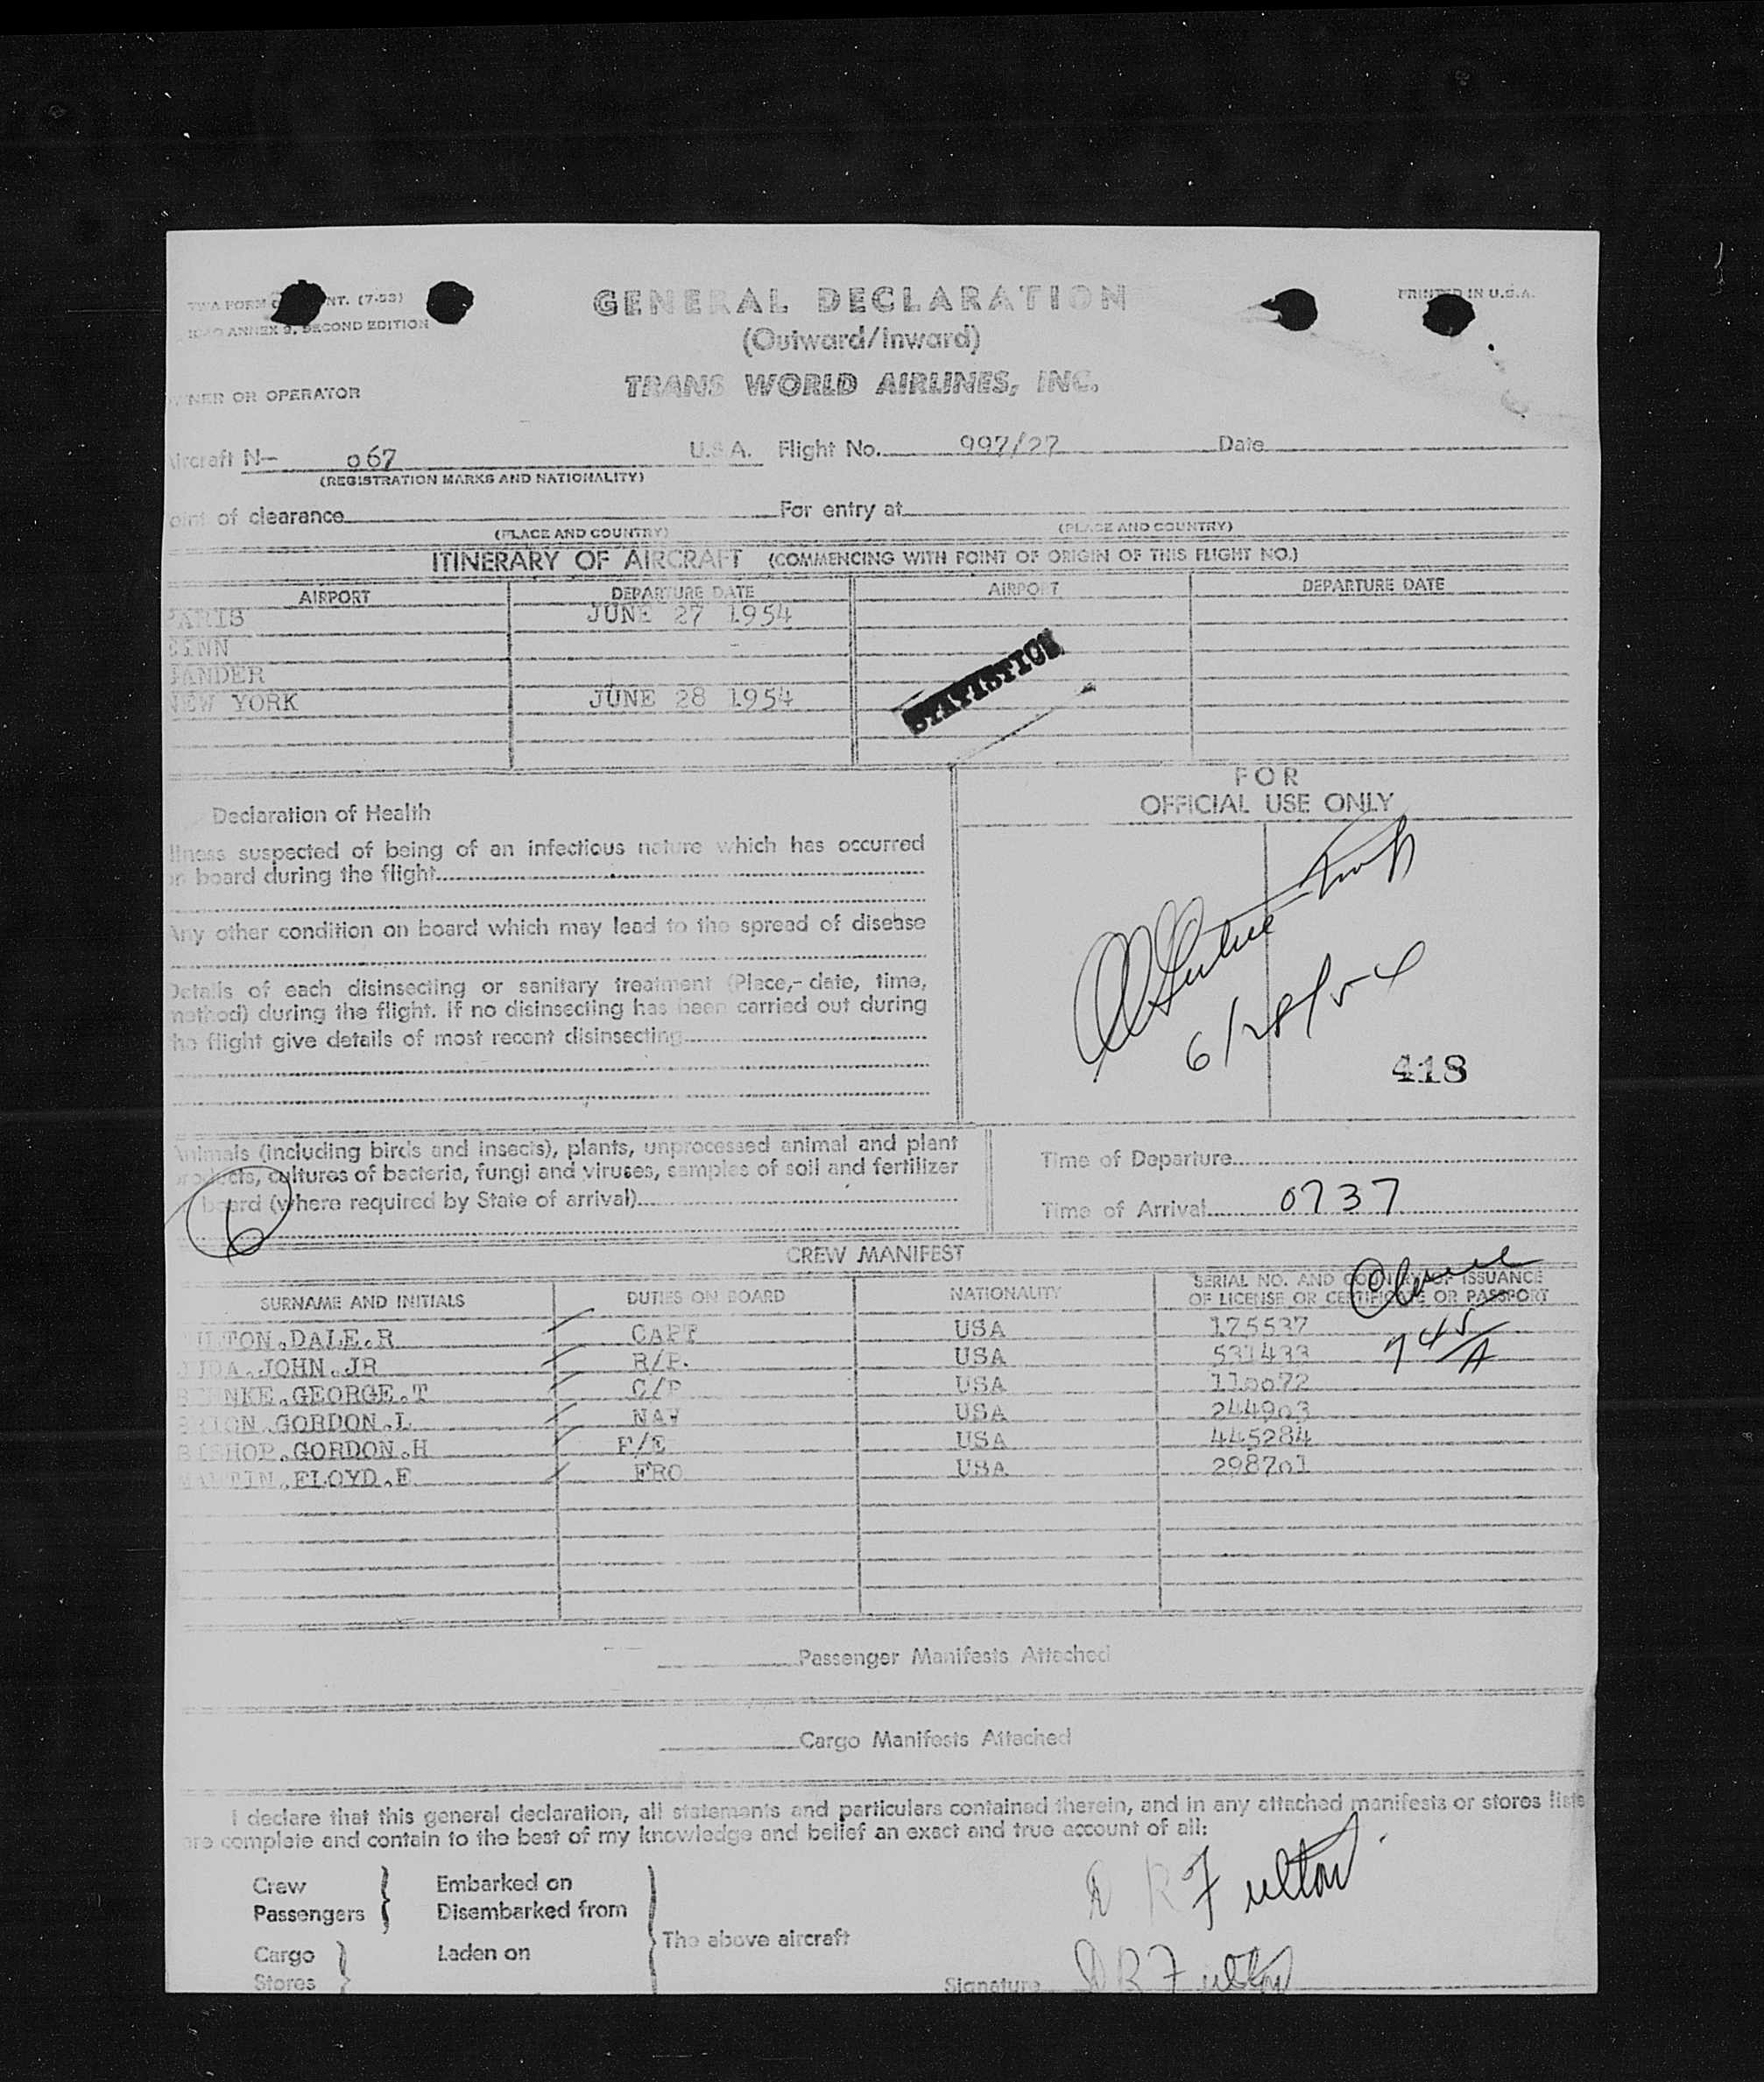 TWA FORM NT. (7-53)
ICAO ANNEX 9, SECOND EDITION
PRINTED IN U.S.A.
GENERAL DECLARATION
(Outward/Inward)
TRANS WORLD AIRLINES, INC.
OWNER OR OPERATOR
Aircraft N- 067 U.S.A. Flight No. 997/27 Date
(REGISTRATION MARKS AND NATIONALITY)
Point of clearance For entry at
(PLACE AND COUNTRY) (PLACE AND COUNTRY)
ITINERARY OF AIRCRAFT (COMMENCING WITH POINT OF ORIGIN OF THIS FLIGHT NO.)
AIRPORT DEPARTURE DATE AIRPORT DEPARTURE DATE
PARIS JUNE 27 1954
GANDER
NEW YORK JUNE 28 1954
STATISTICS
FOR
OFFICIAL USE ONLY
Declaration of Health
Illness suspected of being of an infectious nature which has occurred
on board during the flight
Any other condition on board which may lead to the spread of disease
Details of each disinsecting or sanitary treatment (Place,- date, time,
method) during the flight. If no disinsecting has been carried out during
the flight give details of most recent disinsecting
6/28/54
418
Animals (including birds and insects), plants, unprocessed animal and plant
products, cultures of bacteria, fungi and viruses, samples of soil and fertilizer
board (where required by State of arrival)
6
Time of Departure
Time of Arrival 0737
CREW MANIFEST
SURNAME AND INITIALS DUTIES ON BOARD NATIONALITY SERIAL NO. AND COUNTRY OF ISSUANCE
OF LICENSE OR CERTIFICATE OR PASSPORT
ULTON.DALE.R CAPT USA 175537
JOHN.JR R/P. USA 531433
745/A
GEORGE.T C/P USA 110072
GORDON.L NAV USA 244903
BISHOP.GORDON.H F/E USA 445284
MARTIN.FLOYD.E FRO USA 298701
Passenger Manifests Attached
Cargo Manifests Attached
I declare that this general declaration, all statements and particulars contained therein, and in any attached manifests or stores lists
are complete and contain to the best of my knowledge and belief an exact and true account of all:
Crew Embarked on
Passengers Disembarked from
The above aircraft
Cargo Laden on
Stores
D R Fulton
Signature D R Fulton